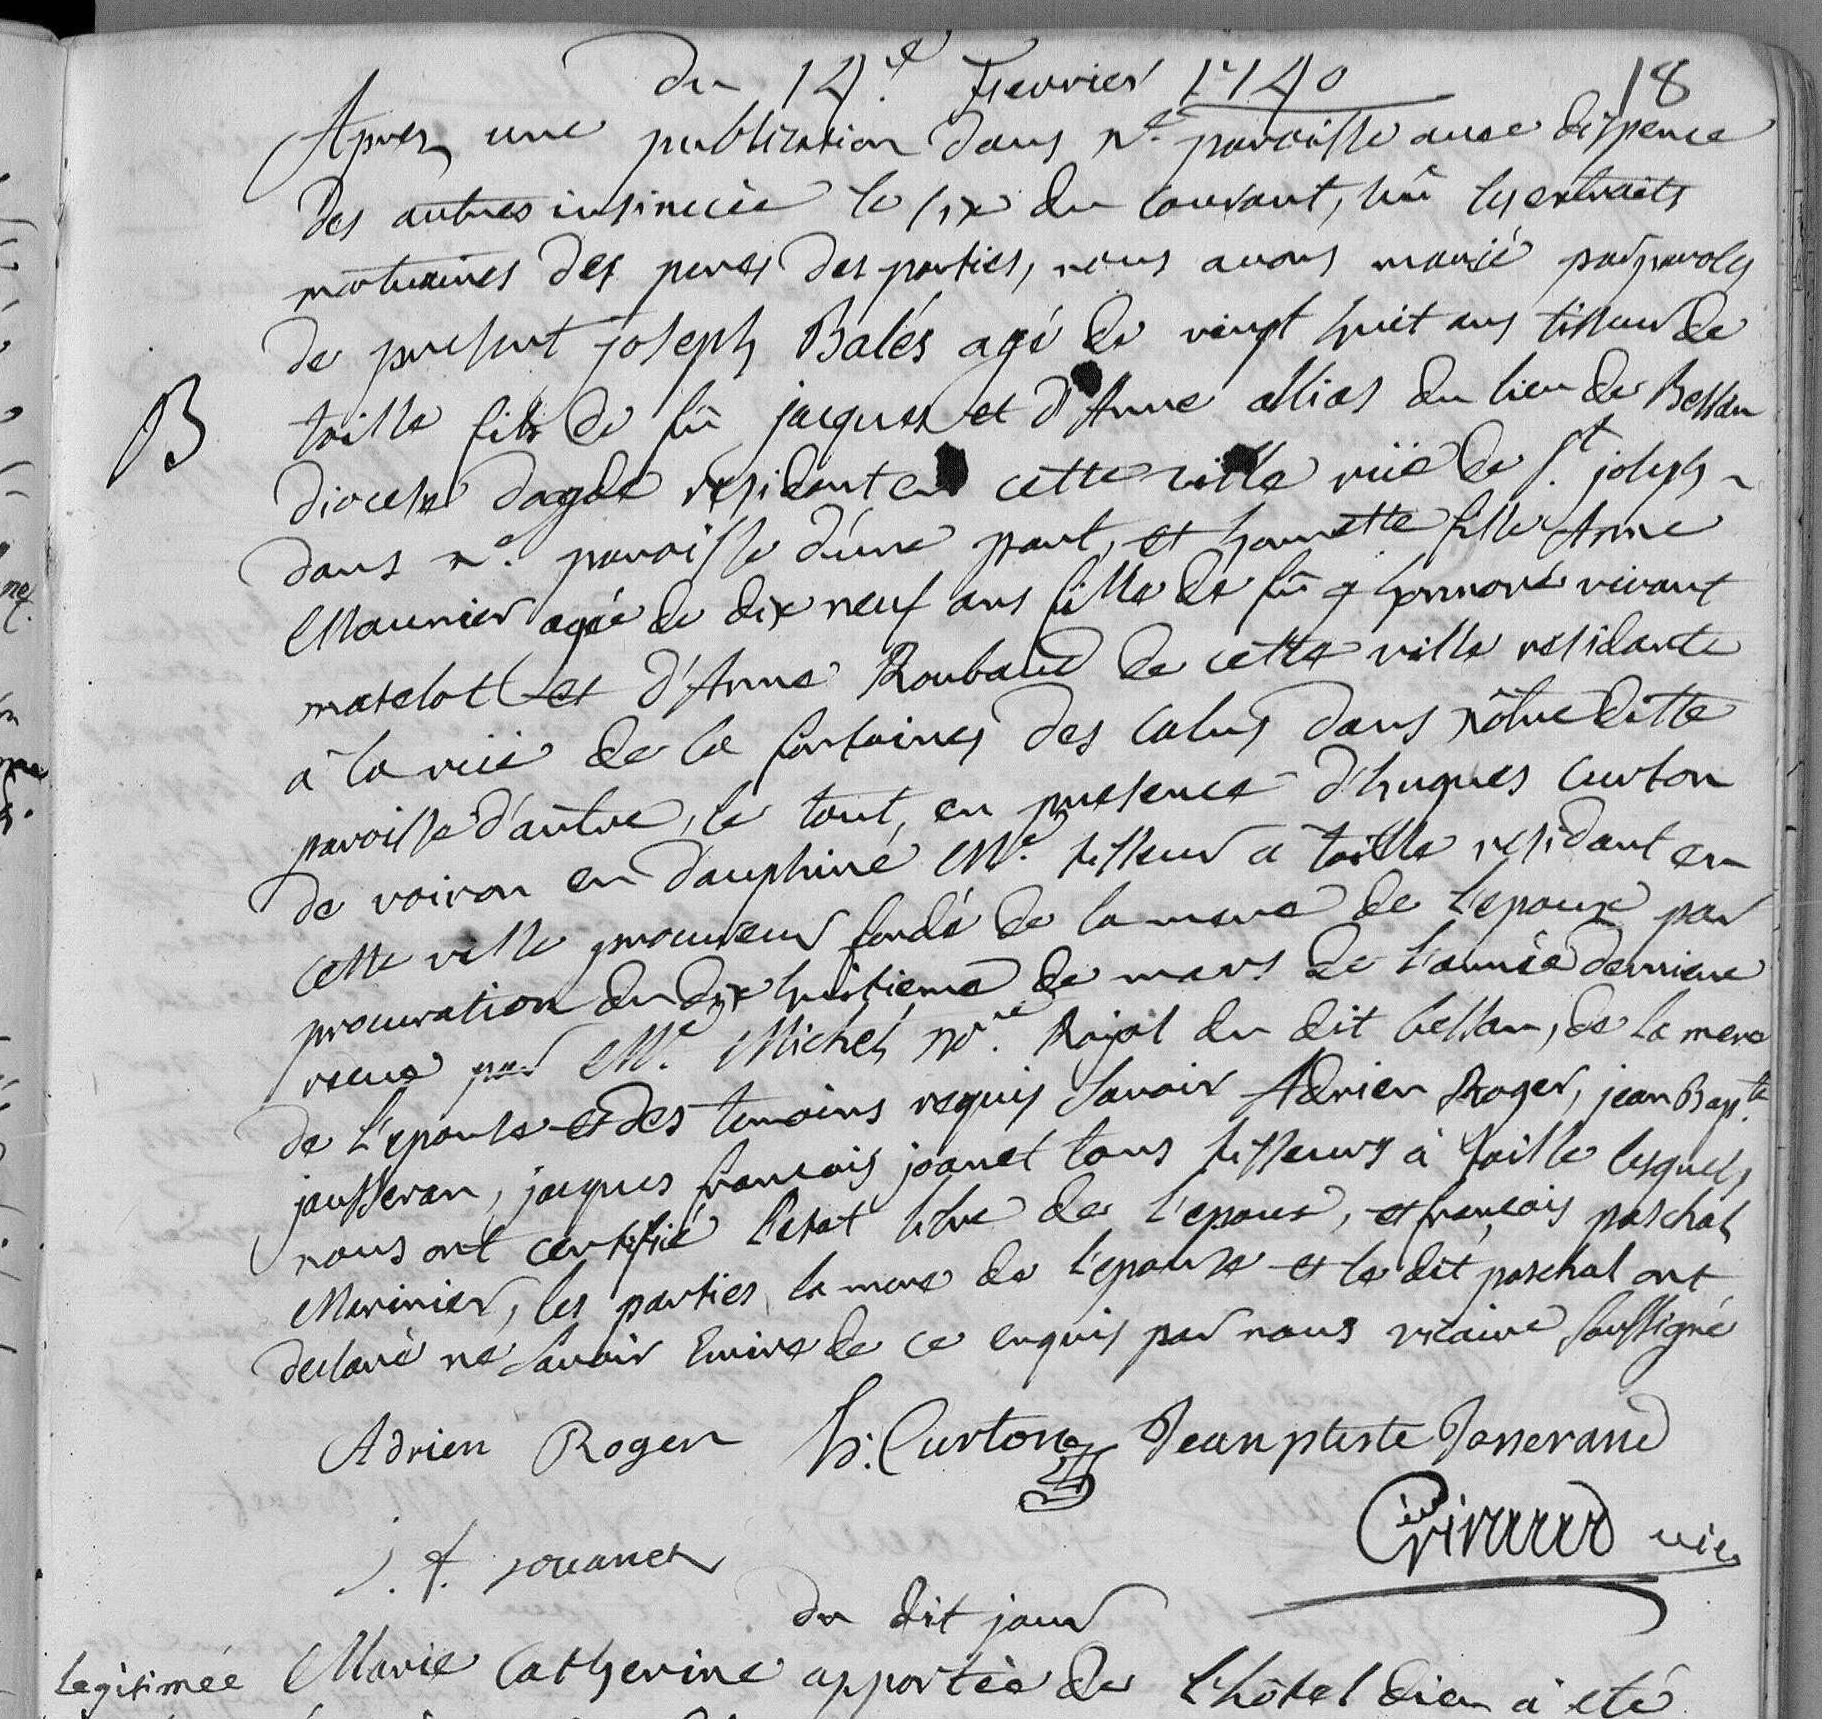 du 14.e fevrier 1740
18
Apres une publication dans n.e paroisse avec dispence
des autres insinuëe le six du courant, vû les extraits
mortuaires des peres des parties, nous avons marié par paroles
de present joseph Balés agé de vingt huit ans tisseur de
B
toille fils de fû jacques et d'Anne allias du lieu de Bessan
diocese dagde residant en cette ville ruë de St. joseph
dans n.e paroisse d'une part, et honnette fille Anne
Maunier agée de dix neuf ans fille de fû honnoré vivant
matelot et d'Anne Roubaud de cette ville residante
à la ruë de la fontaine des dans nôtre ditte
paroisse d'autre, le tout, en presence d'hugues Curton
de voiron en dauphiné Me. tisseur a toille residant en
cette ville procureur fondé de la mere de l'epoux par
procuration du dix huitieme de mars de l'année derniere
receue par Me. Michel no.re Royal du dit bessan, de la mere
de l'epouse et des temoins requis savoir Adrien Roger, jean Bap.te
jausseran, jacques francois joanet tous tisseurs à toille lesquels
nous ont certifié l'etat libre de l'epoux, et francois paschal
Marinier, les parties, la mere de l'epouse et le dit paschal ont
declaré ne savoir Ecrire de ce enquis par nous vicaire soussigné
Adrien Roger h. Curton Jean ptiste Josserand
J. f. jouanet
Giraud vic
du dit jour
legitimée Marie Catherine apportée de l'hôtel dieu à eté